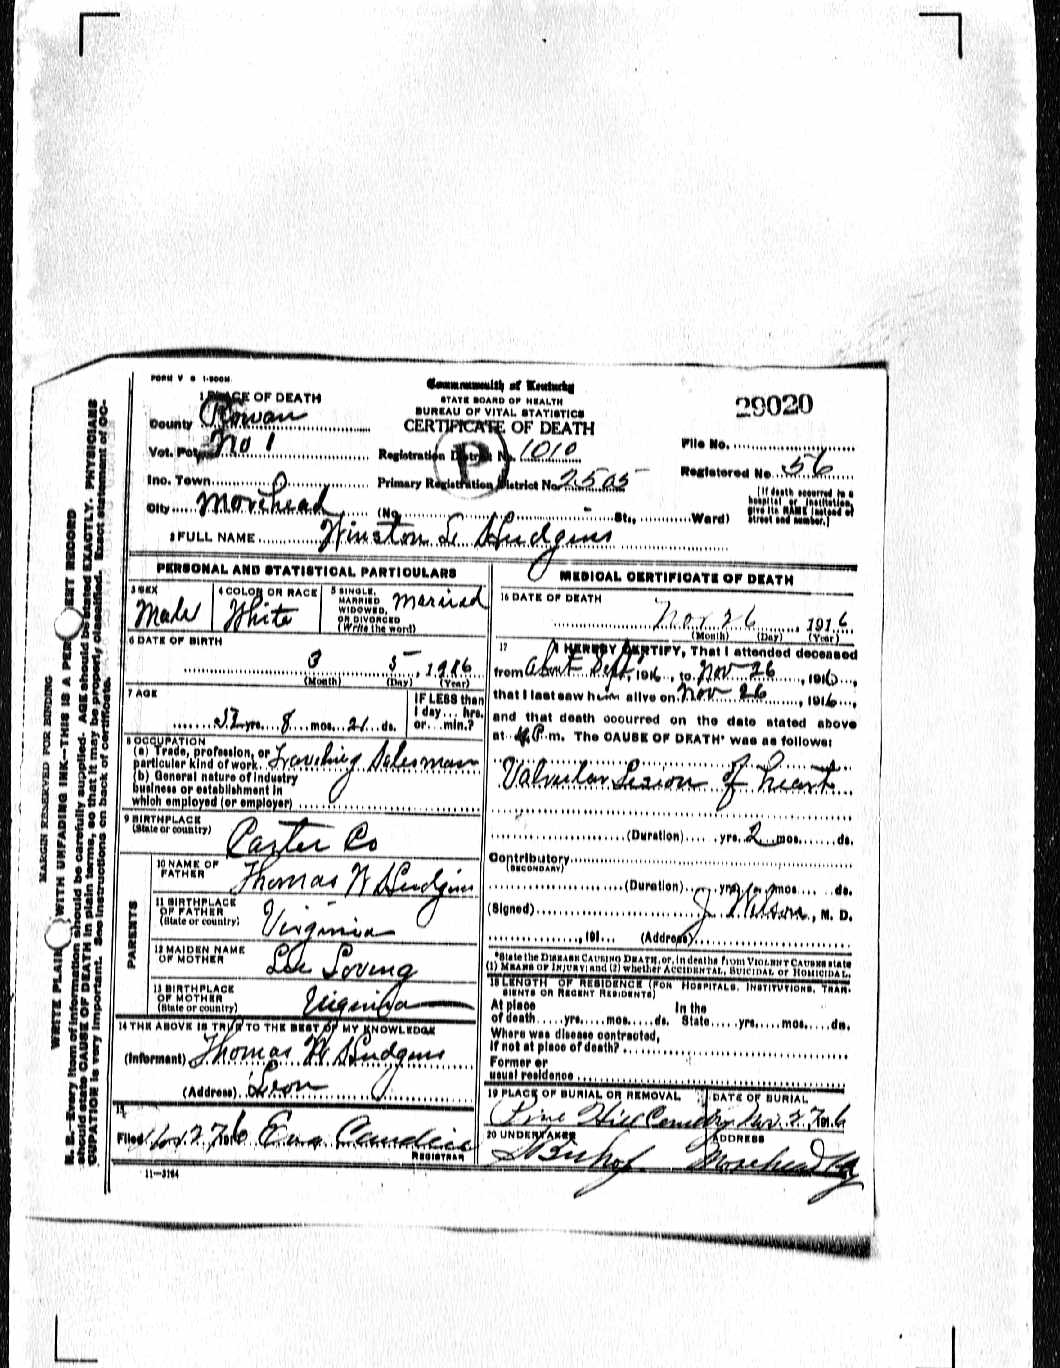 FORM V S 1-500M
Commonwealth of Kentucky
STATE BOARD OF HEALTH
BUREAU OF VITAL STATISTICS
CERTIFICATE OF DEATH
29020
1 PLACE OF DEATH
County Rowan
Vot. Pct. No 1
Ino. Town
City Morehead
Registration District No. 1010
Primary Registration District No. 2505
P
File No.
Registered No. 56
(No. St., Ward)
[If death occurred in a
hospital or institution,
give its NAME instead of
street and number.]
2 FULL NAME Winston L Hudgins
PERSONAL AND STATISTICAL PARTICULARS
3 SEX
Male
4 COLOR OR RACE
White
5 SINGLE,
MARRIED
WIDOWED,
OR DIVORCED
(Write the word)
Married
6 DATE OF BIRTH
3 5, 1986
(Month) (Day) (Year)
7 AGE
yrs. 8 mos. 21 ds.
IF LESS than
1 day... hrs.
or... min.?
8 OCCUPATION
(a) Trade, profession, or
particular kind of work. Traveling Salesman
(b) General nature of industry
business or establishment in
which employed (or employer)
9 BIRTHPLACE
(State or country)
Carter Co
PARENTS
10 NAME OF
FATHER
Thomas W Hudgins
11 BIRTHPLACE
OF FATHER
(State or country)
Virginia
12 MAIDEN NAME
OF MOTHER
Loving
13 BIRTHPLACE
OF MOTHER
(State or country)
Virginia
14 THE ABOVE IS TRUE TO THE BEST OF MY KNOWLEDGE
(Informant) Thomas W Hudgins
(Address) Leon
15
Filed Nov 27, 1916
REGISTRAR
11—3184
MEDICAL CERTIFICATE OF DEATH
16 DATE OF DEATH
Nov 26, 1916
(Month) (Day) (Year)
17 I HEREBY CERTIFY, That I attended deceased
from About Sept, 1916, to Nov 26, 1916,
that I last saw him alive on Nov 26, 1916,
and that death occurred on the date stated above
at 4 P.m. The CAUSE OF DEATH* was as follows:
Valvular Lesion of heart
(Duration) yrs. 2 mos. ds.
Contributory
(SECONDARY)
(Duration) yrs. mos. ds.
(Signed) J Wilson, M. D.
, 191 (Address)
*State the DISEASE CAUSING DEATH, or, in deaths from VIOLENT CAUSES state
(1) MEANS OF INJURY; and (2) whether ACCIDENTAL, SUICIDAL or HOMICIDAL.
18 LENGTH OF RESIDENCE (FOR HOSPITALS, INSTITUTIONS, TRAN-
SIENTS OR RECENT RESIDENTS)
At place
of death yrs. mos. ds.
In the
State yrs. mos. ds.
Where was disease contracted,
if not at place of death?
Former or
usual residence
19 PLACE OF BURIAL OR REMOVAL
Pine Hill Cemetery
DATE OF BURIAL
Nov. 27, 1916
20 UNDERTAKER
Bishop
ADDRESS
Morehead Ky
MARGIN RESERVED FOR BINDING
WRITE PLAINLY WITH UNFADING INK—THIS IS A PERMANENT RECORD
N. B.—Every item of information should be carefully supplied. AGE should be stated EXACTLY. PHYSICIANS
should state CAUSE OF DEATH in plain terms, so that it may be properly classified. Exact statement of OC-
CUPATION is very important. See instructions on back of certificate.